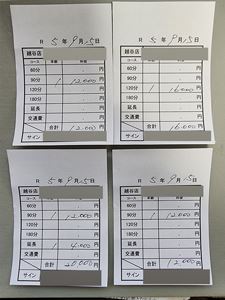 R 5年9月15日
越谷店
コース 本数 料金
60分 円
90分 1 12000円
120分 円
180分 円
延長 円
交通費 円
合計 12000円
サイン
R 5年9月15日
コース 本数 料金
60分 円
90分 円
120分 1 16000円
180分 円
延長 円
交通費 円
合計 16000円
サイン
R 5年9月15日
越谷店
コース 本数 料金
60分 円
90分 1 12000円
120分 円
180分 円
延長 1 4000円
交通費 円
合計 20000円
サイン
R 5年9月15日
越谷店
コース 本数 料金
60分 円
90分 1 12000円
120分 円
180分 円
延長 円
交通費 円
合計 12000円
サイン